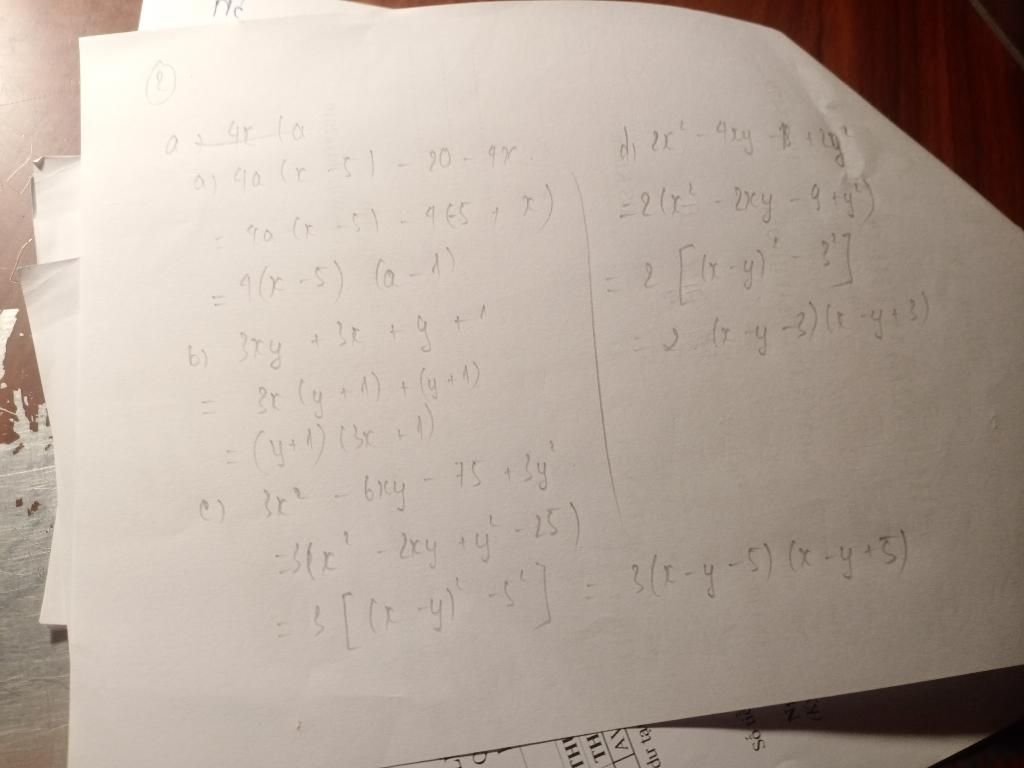 ②
a) 4a(x - 5) - 20 - 4x
= 4a(x - 5) - 4(-5 + x)
= 4(x - 5) (a - 1)
b) 3xy + 3x + y + 1
= 3x(y + 1) + (y + 1)
= (y + 1)(3x + 1)
c) 3x² - 6xy - 75 + 3y²
= 3(x² - 2xy + y² - 25)
= 3[(x - y)² - 5²] = 3(x - y - 5)(x - y + 5)
d) 2x² - 4xy - 18 + 2y²
= 2(x² - 2xy - 9 + y²)
= 2[(x - y)² - 3²]
= 2(x - y - 3)(x - y + 3)